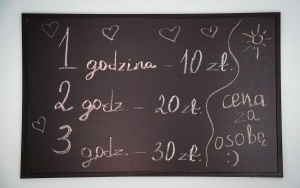 1 godzina – 10 zł.
2 godz. – 20 zł.
3 godz. – 30 zł.
cena
za
osobę
:)